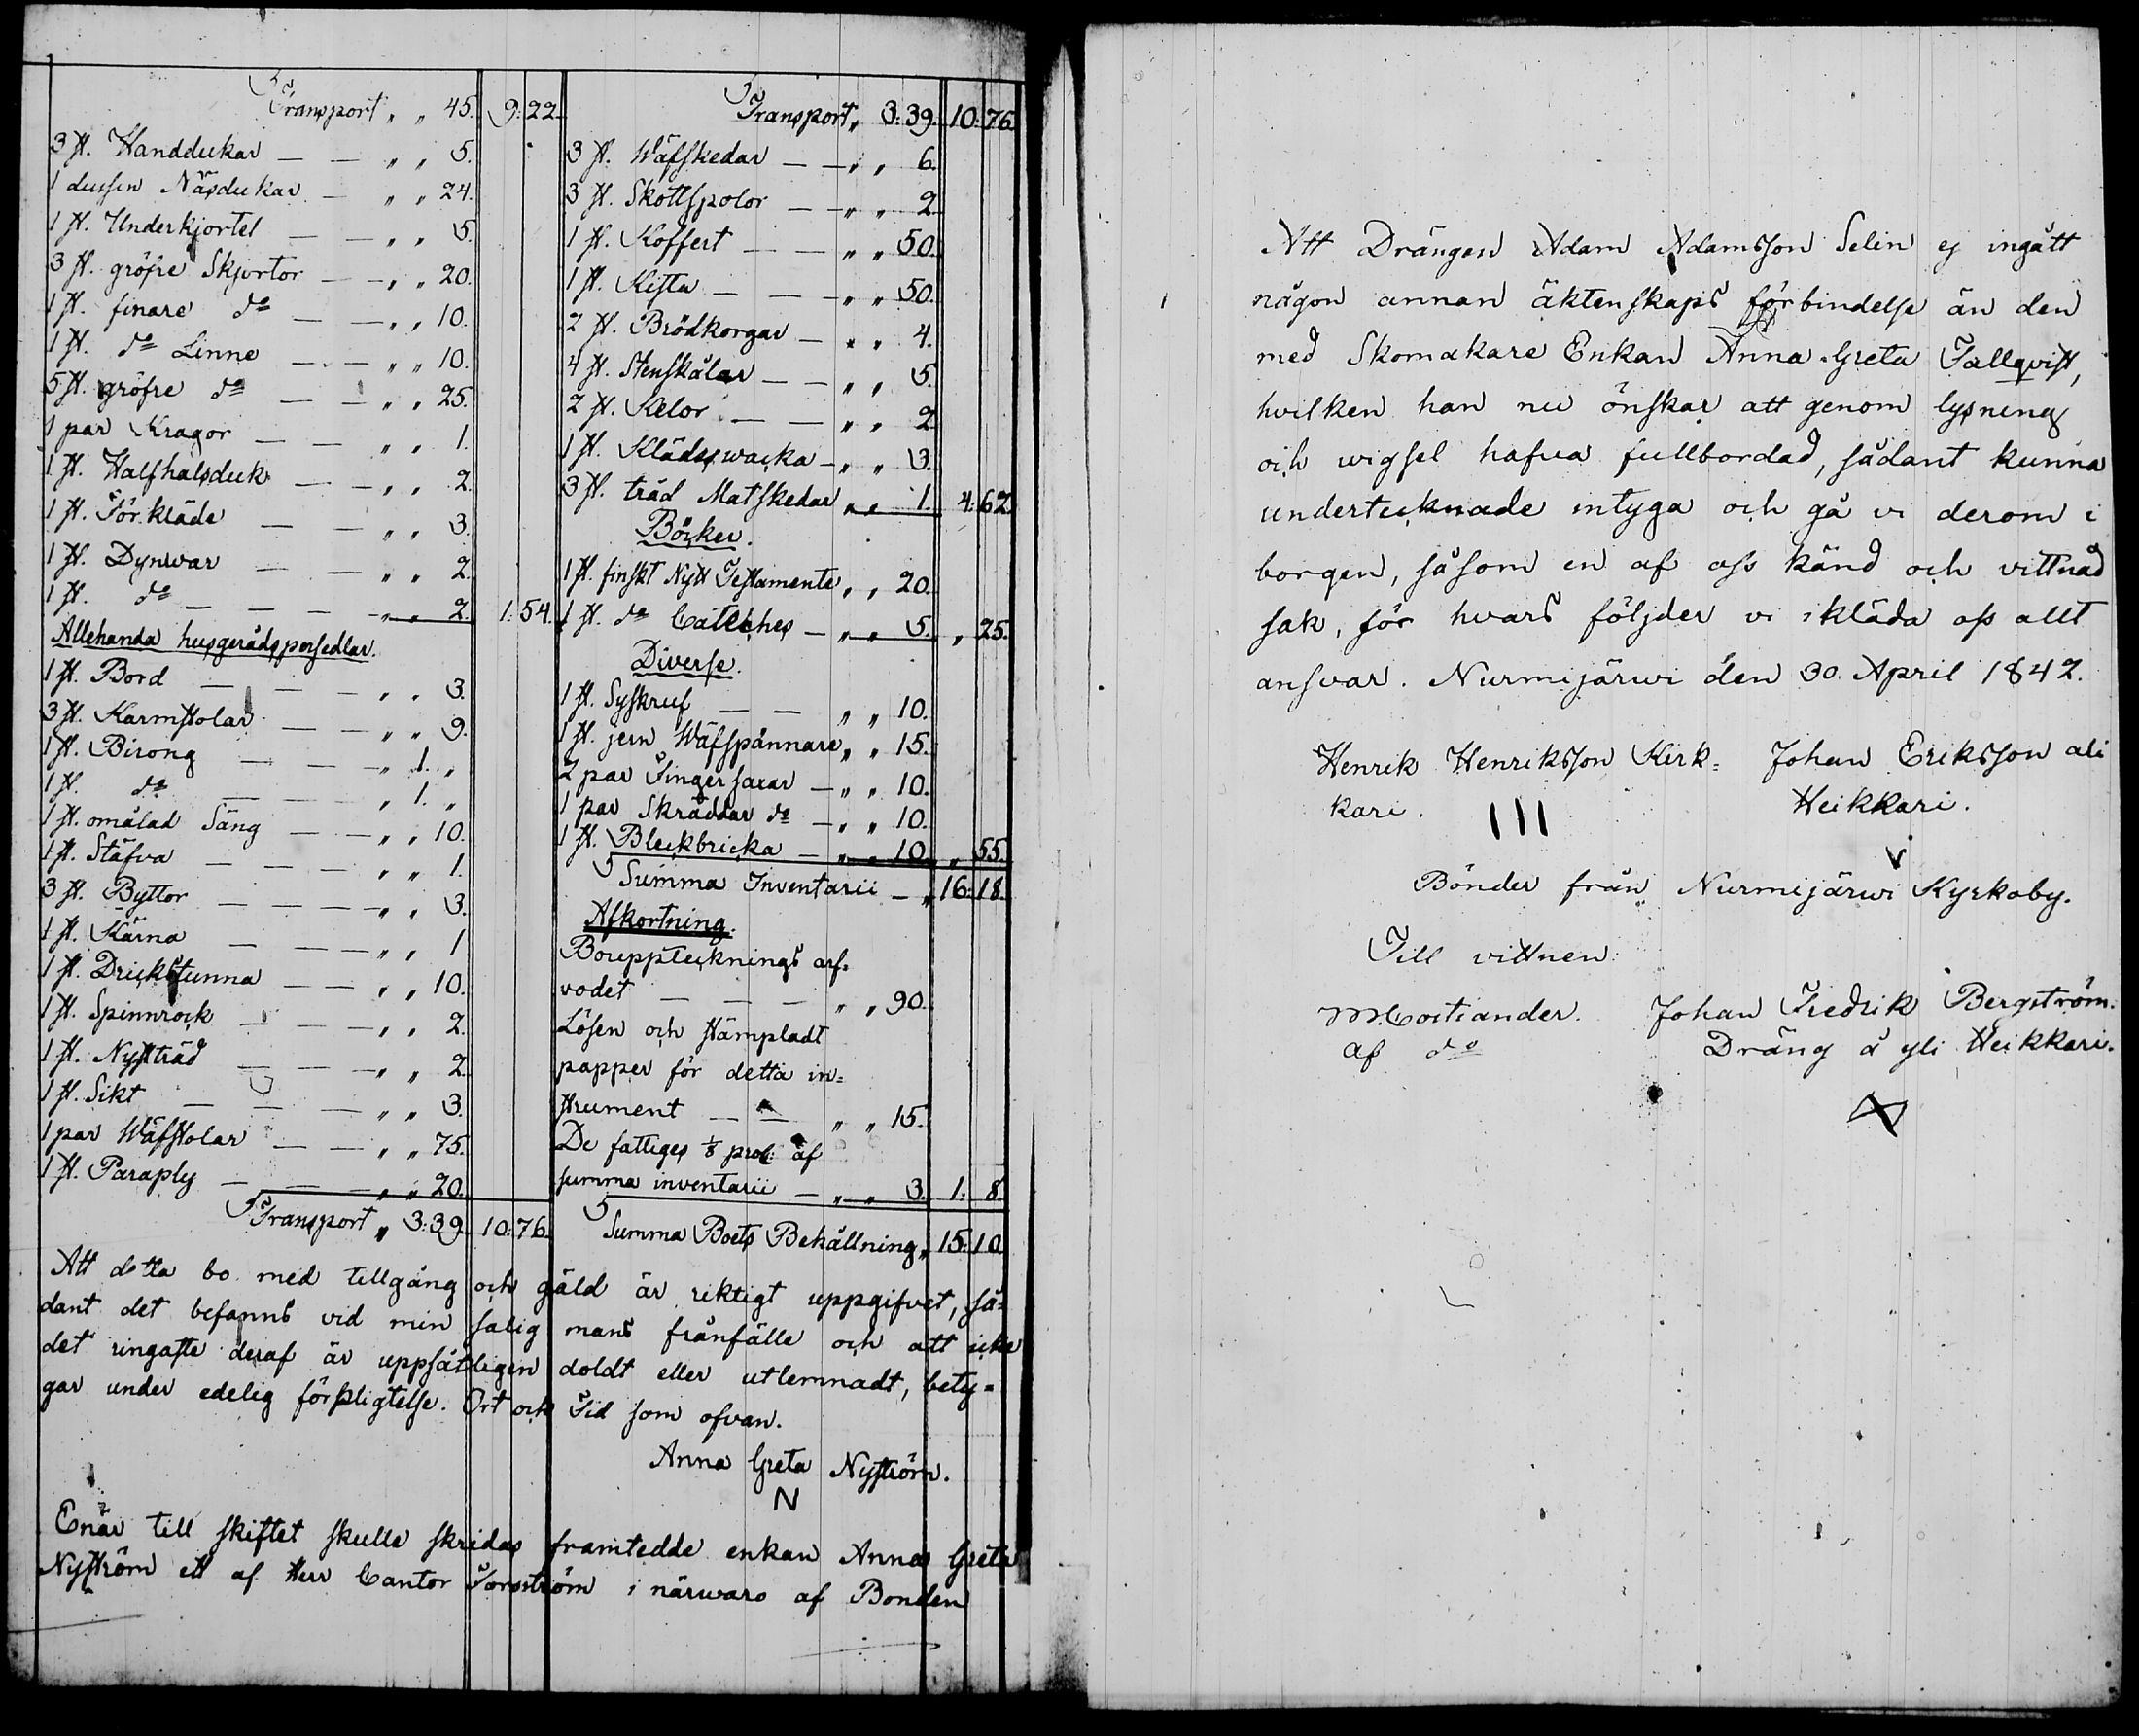 Transport „ „ 45. 9: 22.
3 st. Handdukar — — „ „ 5.
1 dussin Näsdukar — „ „ 24.
1 st. Underkjortel — — „ „ 5.
3 st. gröfre Skjortor — — „ „ 20.
1 st. finare do — — „ „ 10.
1 st. do Linne — — „ „ 10.
5 st. gröfre do — — „ „ 25.
1 par Kragor — — „ „ 1.
1 st. Halfhalsduk — — „ „ 2.
1 st. Förkläde — — „ „ 3.
1 st. Dynwar — — „ „ 2.
1 st. do — — — „ „ 2. 1: 54.
Allehanda husgerådspersedlar.
1 st. Bord — — — „ „ 3.
3 st. Karmstolar — — „ „ 9.
1 st. Birong — — — „ 1. „
1 st. do — — — „ 1. „
1 st. omålad Säng — — „ „ 10.
1 st. Stäfva — — — „ „ 1.
3 st. Byttor — — — „ „ 3.
1 st. Kärna — — — „ „ 1
1 st. Drickstunna — — „ „ 10.
1 st. Spinnrock — — — „ „ 2.
1 st. Nystträd — — — „ „ 2.
1 st. Sikt — — — „ „ 3.
1 par Wäfstolar — — „ „ 75.
1 st. Paraply — — — „ „ 20.
Transport „ 3: 39. 10: 76.
Transport „ 3: 39. 10: 76.
3 st. Wäfskedar — — „ „ 6.
3 st. Skottspolor — — „ „ 2.
1 st. Koffert — — „ „ 50.
1 st. Kista — — — „ „ 50.
2 st. Brödkorgar — „ „ 4.
4 st. Stenskålar — — „ „ 5.
2 st. Kelor — — „ „ 2.
1 st. Klädeswacka — „ „ 3.
3 st. träd Matskedar „ „ 1. 4: 62.
Böcker.
1 st. finskt Nytt Testamente „ „ 20.
1 st. do Catechес — „ „ 5. „ 25.
Diverse.
1 st. Syskruf — — „ „ 10.
1 st. jern Wäfspännare „ „ 15.
2 par Fingersaxar — „ „ 10.
1 par Skräddar do — „ „ 10.
1 st. Bleckbricka — „ „ 10. „ 55.
Summa Inventarii — „ 16: 18.
Afkortning.
Bouppteckninges arf=
vodet — — — „ „ 90.
Lösen och stämpladt
papper för detta in=
strument — — „ „ 15.
De fattiges 1/8 proc: af
summa inventarii — „ „ 3. 1. 8.
Summa Boets Behållning „ 15: 10.
Att detta bo med tillgång och gäld är riktigt uppgifvet, så=
dant det befanns vid min salig mans frånfälle och att icke
det ringaste deraf är uppsåtligen doldt eller utlemnadt, bety=
gar under edelig förpligtelse. Ort och Tid som ofvan.
Anna Greta Nyström.
N
Enär till skiftet skulle skridas framtedde enkan Anna Greta
Nyström ett af Herr Cantor Forsström i närwaro af Bonden
Att Drängen Adam Adamsson Selin ej ingått
någon annan äktenskaps förbindelse än den
med Skomakare Enkan Anna Greta Tallqvist,
hvilken han nu önskar att genom lysning
och wigsel hafva fullbordad, sådant kunna
undertecknade intyga och gå vi derom i
borgen, såsom en af oss känd och vittnad
sak, för hvars följder vi ikläda oss allt
ansvar. Nurmijärwi den 30. April 1842.
Henrik Henriksson Kirk= Johan Eriksson ali
kari. III Heikkari.
V
Bönder från Nurmijärwi Kyrkoby.
Till vittnen:
M. Costiander. Johan Fredrik Bergström.
af do Dräng å yli Heikkari.